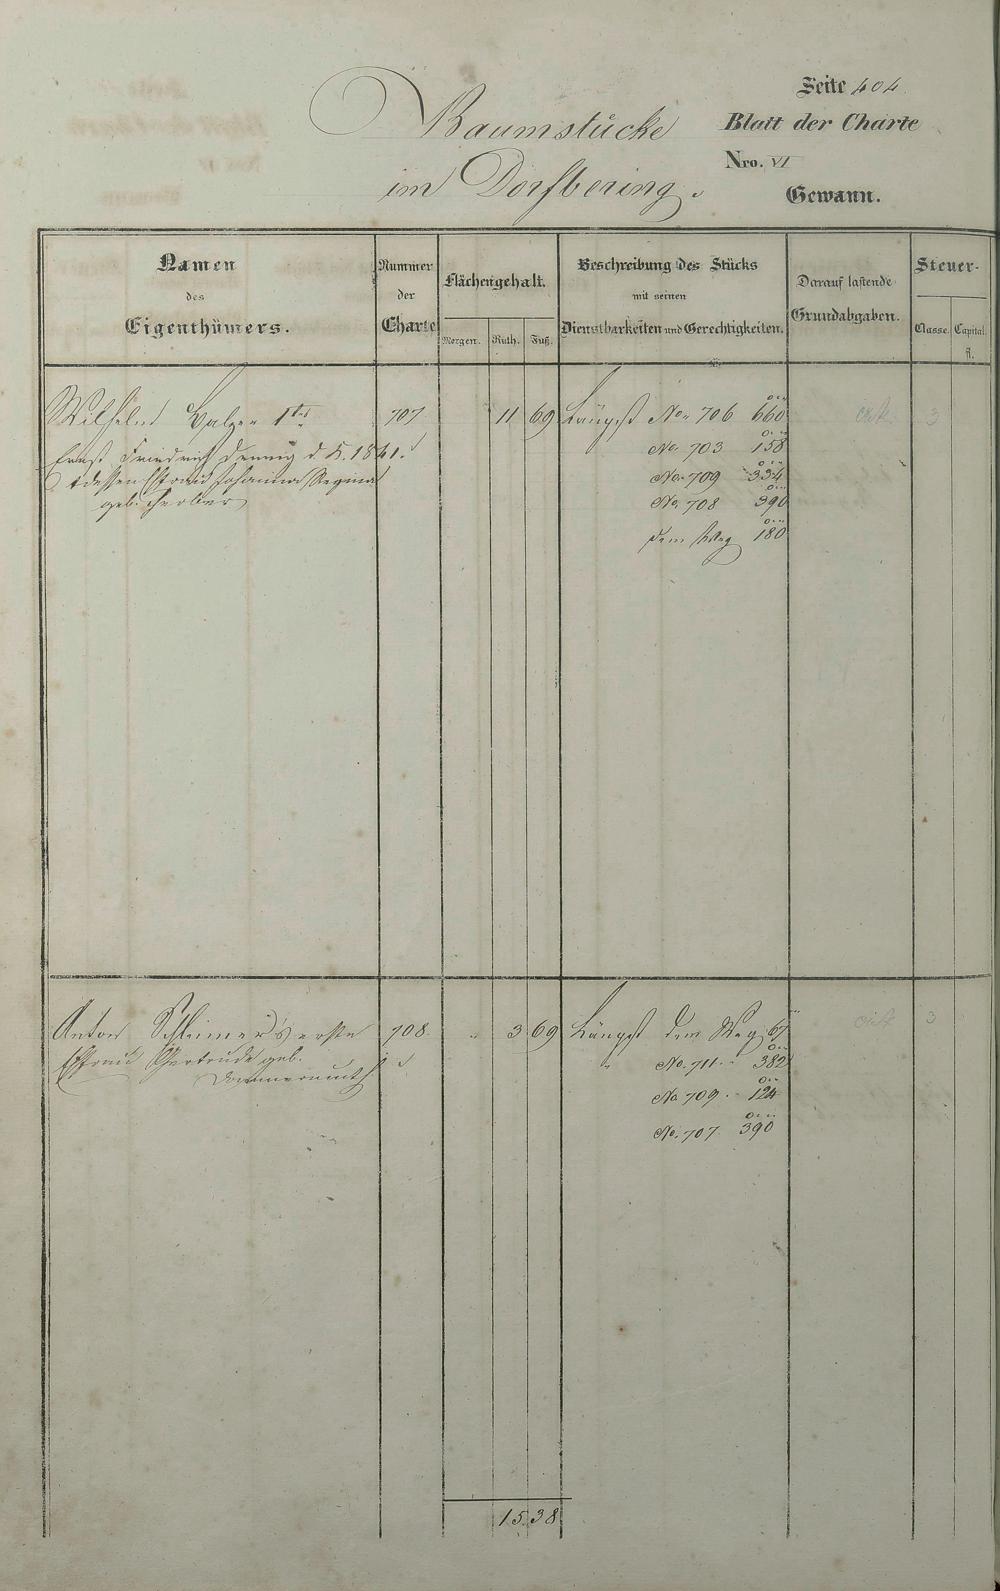 Seite 404
Baumstücke
Blatt der Charte
Nro. VI
im Dorfbering.
Gewann.
Namen
des
Eigenthümers.
Nummer
der
Charte
Flächengehalt.
Morgen. Ruth. Fuß.
Beschreibung des Stücks
mit seinen
Dienstbarkeiten und Gerechtigkeiten.
Darauf lastende
Grundabgaben.
Steuer-
Classe. Capital.
fl.
Wilhelm Balzer 1ter 707 11 69 Längst No 706 660
Ernst Friedrich Dennig d. K. 1841. No. 703 158
& dessen Ehefrau Johanna Regina No. 709 334
geb. No. 708 390
dem Weg 180
Anton erste 708 3 69 Längst dem Weg 67
Ehefrau Gertrude geb. No. 711 382
No 709 124
No. 707 390
15.38
3
3